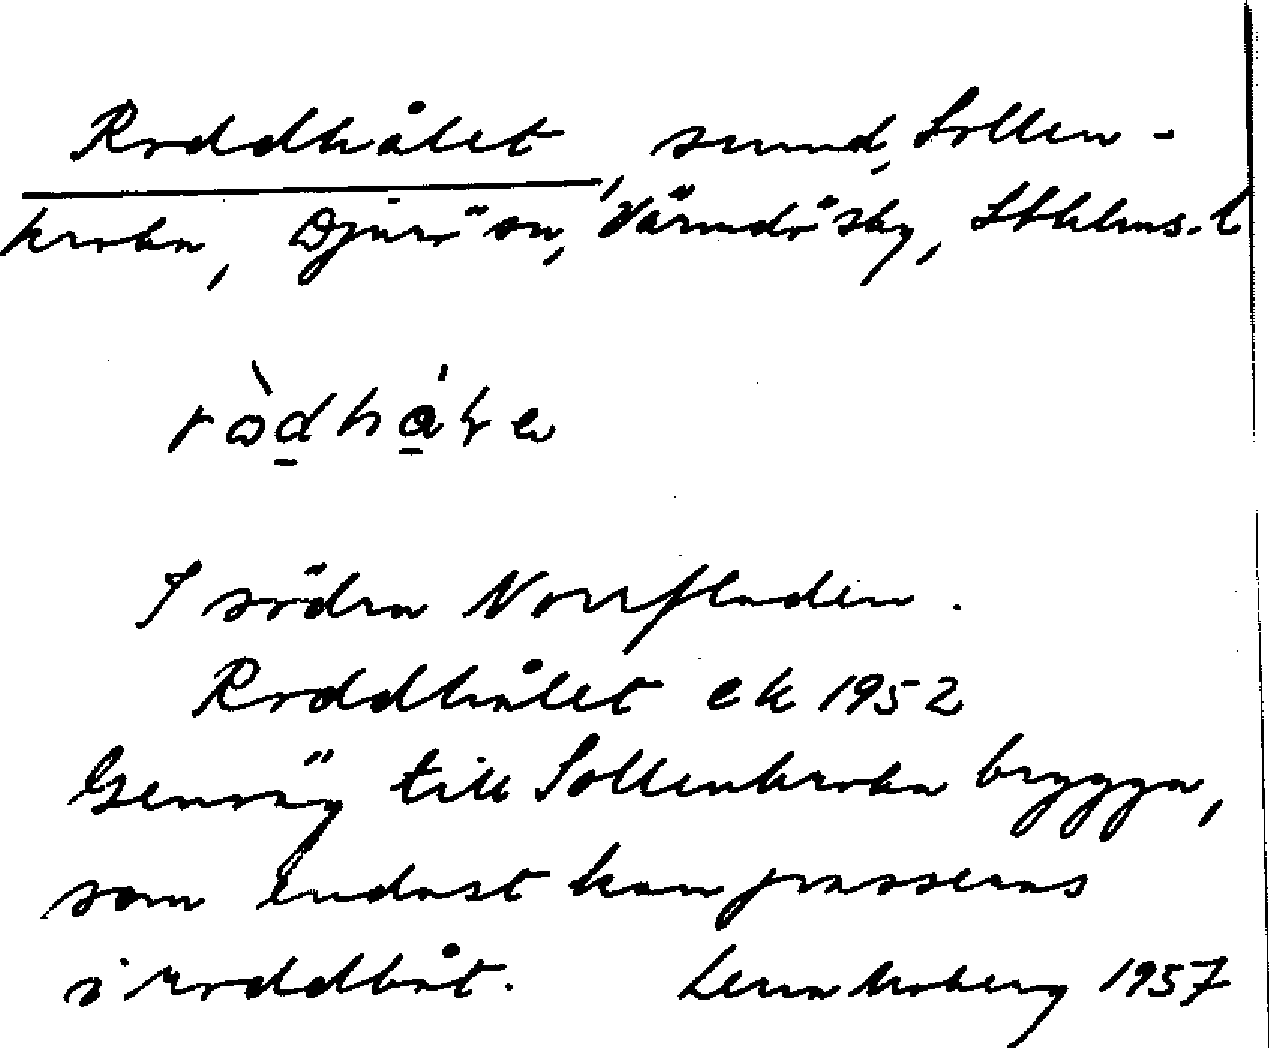 Roddhålet, sund, Sollen-
kroka, Djurö sn, Värmdö sky, Sthlms. l
ròdhǻłe
I södra Norrfladen.
Roddhålet ek 1952
Genväg till Sollenkroka brygga,
som endast kan passeras
i roddbåt. Lena Moberg 1957